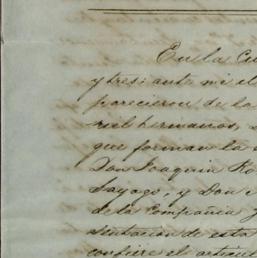 En la Cu
y tres: ante mi el
parecieron de la
riel hermanos,
que forman la
Don Joaquin Ro
Sayago, y Don
de la Compañia
sentacion de esta
confiere el articu